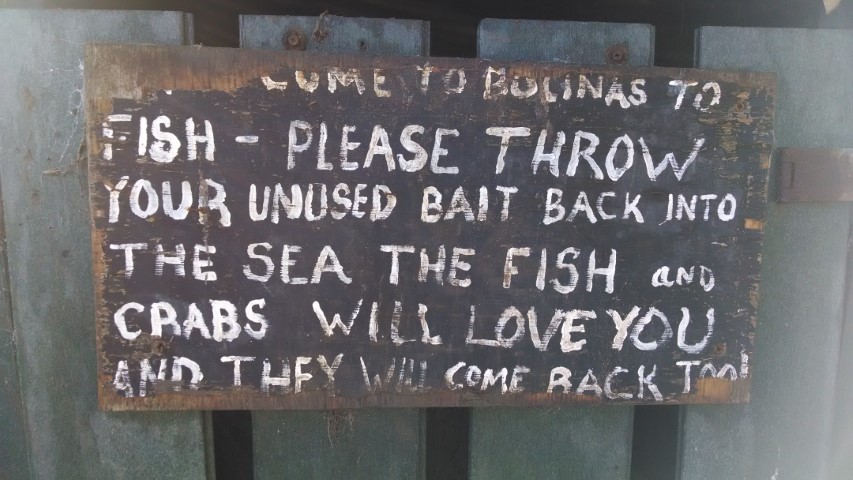 COME TO BOLINAS TO
FISH - PLEASE THROW
YOUR UNUSED BAIT BACK INTO
THE SEA THE FISH AND
CRABS WILL LOVE YOU
AND THEY WILL COME BACK TOO!